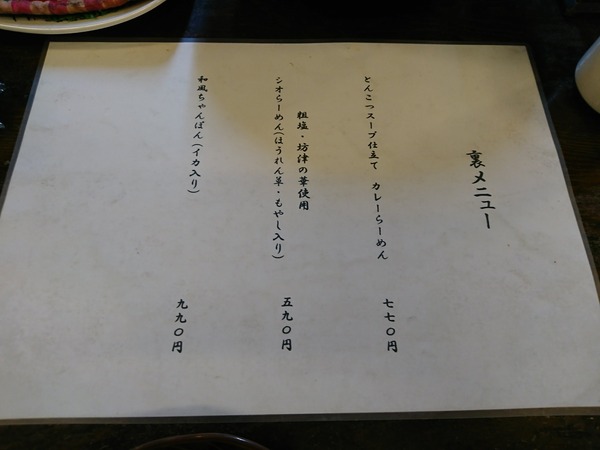 裏メニュー
とんこつスープ仕立て カレーらーめん 七七〇円
粗塩・坊津の華使用
シオらーめん(ほうれん草・もやし入り) 五九〇円
和風ちゃんぽん(イカ入り) 九九〇円